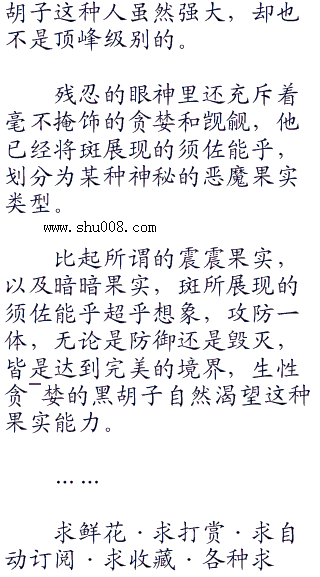 胡子这种人虽然强大，却也
不是顶峰级别的。
残忍的眼神里还充斥着
毫不掩饰的贪婪和觊觎，他
已经将斑展现的须佐能乎，
划分为某种神秘的恶魔果实
类型。
www.shu008.com
比起所谓的震震果实，
以及暗暗果实，斑所展现的
须佐能乎超乎想象，攻防一
体，无论是防御还是毁灭，
皆是达到完美的境界，生性
贪¯婪的黑胡子自然渴望这种
果实能力。
……
求鲜花·求打赏·求自
动订阅·求收藏·各种求